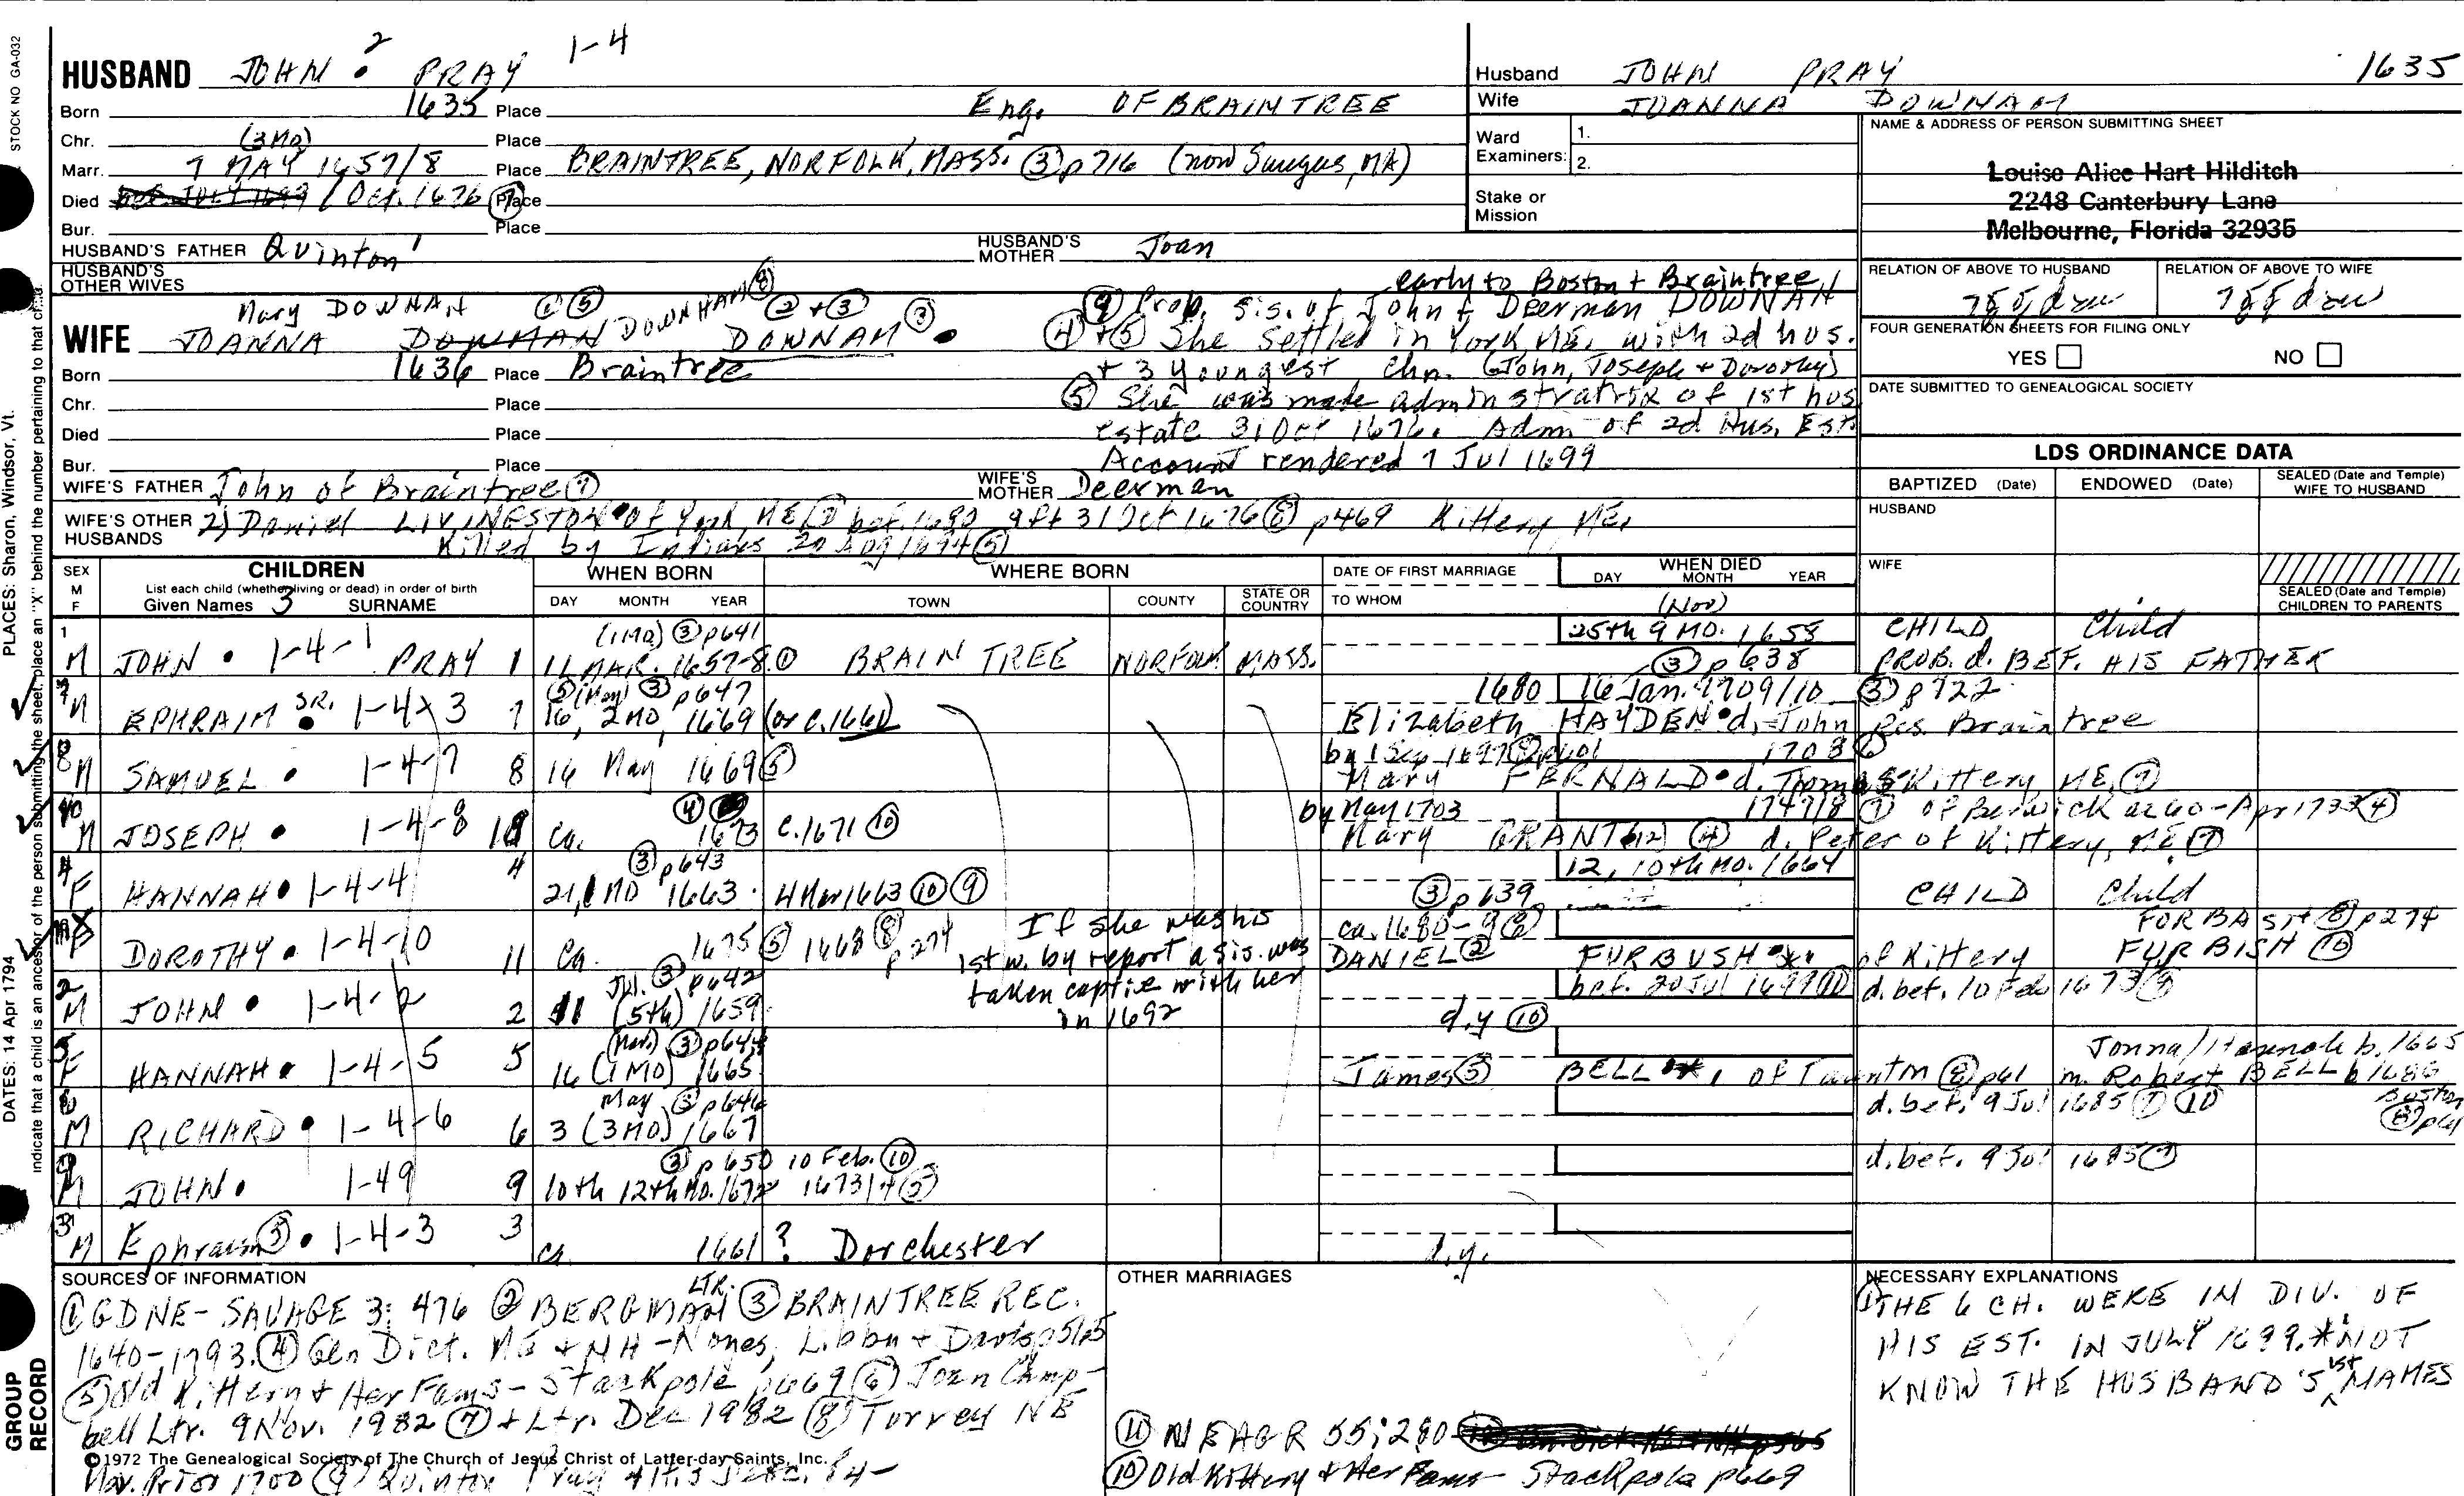 STOCK NO GA-032
PLACES: Sharon, Windsor, Vt.
DATES: 14 Apr 1794
indicate that a child is an ancestor of the person submitting the sheet, place an "X" behind the number pertaining to that child.
GROUP
RECORD
HUSBAND JOHN 2 • PRAY 1-4
Born 1635 Place Eng. OF BRAINTREE
Chr. (3 Mo) Place
Marr. 7 MAY 1657/8 Place BRAINTREE, NORFOLK, MASS. ③ p716 (now Saugus, MA)
Died bef. JULY 1699 / Oct. 1676 ⑦ Place
Bur. Place
HUSBAND'S FATHER Quinton 1 HUSBAND'S MOTHER Joan
HUSBAND'S OTHER WIVES
Mary DOWNAM ① ⑤ DOWNHAM ⑧ ② + ③
WIFE JOANNA DOWMAN DOWNAM ③ •
early to Boston + Braintree
⑨ Prob. sis. of John & Deerman DOWNAM
④ + ⑤ She settled in York, ME. with 2d hus.
+ 3 youngest chn. (John, Joseph + Dorothy)
⑤ She was made administratrix of 1st hus
estate 31 Oct 1676. Adm. of 2d Hus. Est.
Account rendered 7 Jul 1699
Born 1636 Place Braintree
Chr. Place
Died Place
Bur. Place
WIFE'S FATHER John of Braintree ⑦ WIFE'S MOTHER Deerman
WIFE'S OTHER HUSBANDS 2) Daniel LIVINGSTON • of York, ME bef. 1682 aft 31 Oct 1676 ⑧ p469 Kittery ME.
Killed by Indians 20 Aug 1694 ⑤
Husband JOHN PRAY 1635
Wife JOANNA DOWNAM
Ward Examiners: 1.
2.
Stake or Mission
NAME & ADDRESS OF PERSON SUBMITTING SHEET
Louise Alice Hart Hilditch
2248 Canterbury Lane
Melbourne, Florida 32935
RELATION OF ABOVE TO HUSBAND
RELATION OF ABOVE TO WIFE
FOUR GENERATION SHEETS FOR FILING ONLY
YES NO
DATE SUBMITTED TO GENEALOGICAL SOCIETY
LDS ORDINANCE DATA
BAPTIZED (Date) ENDOWED (Date) SEALED (Date and Temple) WIFE TO HUSBAND
HUSBAND
WIFE
SEALED (Date and Temple) CHILDREN TO PARENTS
SEX M F
CHILDREN
List each child (whether living or dead) in order of birth
Given Names 3 SURNAME
WHEN BORN
DAY MONTH YEAR
WHERE BORN
TOWN COUNTY STATE OR COUNTRY
DATE OF FIRST MARRIAGE
TO WHOM
WHEN DIED
DAY MONTH YEAR
(Nov)
(1 Mo) ③ p641 25th 9 MO. 1658 CHILD Child
1 M JOHN • 1-4-1 PRAY 1 11 MAR. 1657-8 ① BRAIN TREE NORFOLK MASS. ③ p638 PROB. d. BEF. HIS FATHER
⑤ (May) ③ p647 1680 16 Jan. 1709/10 ③ p722
7 M EPHRAIM SR. • 1-4 3 7 16, 2 MO, 1669 (or c.1661) Elizabeth HAYDEN • d. John Res. Braintree
by 1 Sep 1697 ⑧ 1708 ⑥
8 M SAMUEL • 1-4-7 8 16 May 1669 ⑤ Mary FERNALD • d. Thomas Kittery ME. ⑦
by May 1703 1747/8 ⑦ of Berwick Apr 1733 ④
10 M JOSEPH • 1-4-8 10 Ca. ④ 1673 c. 1671 ⑩ Mary GRANT ④ d. Peter of Kittery, ME ⑦
③ p643 12, 10th MO. 1664
4 F HANNAH • 1-4-4 4 21, 1 MO 1663. 4 Mar 1663 ⑩ ⑨ ③ p639 CHILD Child
ca. 1680-9 ⑧ FORBASH ⑧ p274
F DOROTHY • 1-4-10 11 Ca. 1675 ⑤ 1668 ⑧ p274 DANIEL ② FURBUSH • of Kittery FURBISH ⑩
If she was his
1st w. by report a sis. was
taken captive with her
in 1692
Jul. ③ p642 bef. 20 Jul 1699 ⑩ d. bef. 10 Feb 1673 ⑨
2 M JOHN • 1-4-2 2 11 (5th) 1659. d.y ⑩
(Mar.) ③ p644 Jonna/Hannah b. 1665
5 F HANNAH • 1-4-5 5 16 (1 MO) 1665. James ⑤ BELL, of Taunton ⑧ p61 m. Robert BELL b 1686 Boston ⑧ p61
May ③ p646 d. bef. 9 Jul 1685 ⑦ ⑩
6 M RICHARD • 1-4-6 6 3 (3 MO) 1667
③ p650 10 Feb. ⑩ d. bef. 9 Jul 1685 ⑦
9 M JOHN • 1-49 9 10th 12th MO. 1672 1673/4 ⑤
3 M Ephraim ⑤ • 1-4-3 3 ca. 1661 ? Dorchester d.y.
SOURCES OF INFORMATION
① GDNE - SAVAGE 3: 476 ② BERGMAN LTR. ③ BRAINTREE REC.
1640-1793. ④ Gen Dict. ME + NH - Noyes, Libby + Davis p565
⑤ Old Kittery + Her Fams - Stackpole p669 ⑥ Joan Camp-
bell Ltr. 9 Nov. 1982 ⑦ + Ltr. Dec 1982 ⑧ Torrey NE
©1972 The Genealogical Society of The Church of Jesus Christ of Latter-day Saints, Inc.
Mar. Prior 1700 ⑨ Quinton Pray
OTHER MARRIAGES
⑪ NEHGR 55:280
⑩ Old Kittery + Her Fams - Stackpole p669
NECESSARY EXPLANATIONS
① THE 6 CH. WERE IN DIV. OF
HIS EST. IN JULY 1699. * NOT
KNOW THE HUSBAND'S 1st NAMES